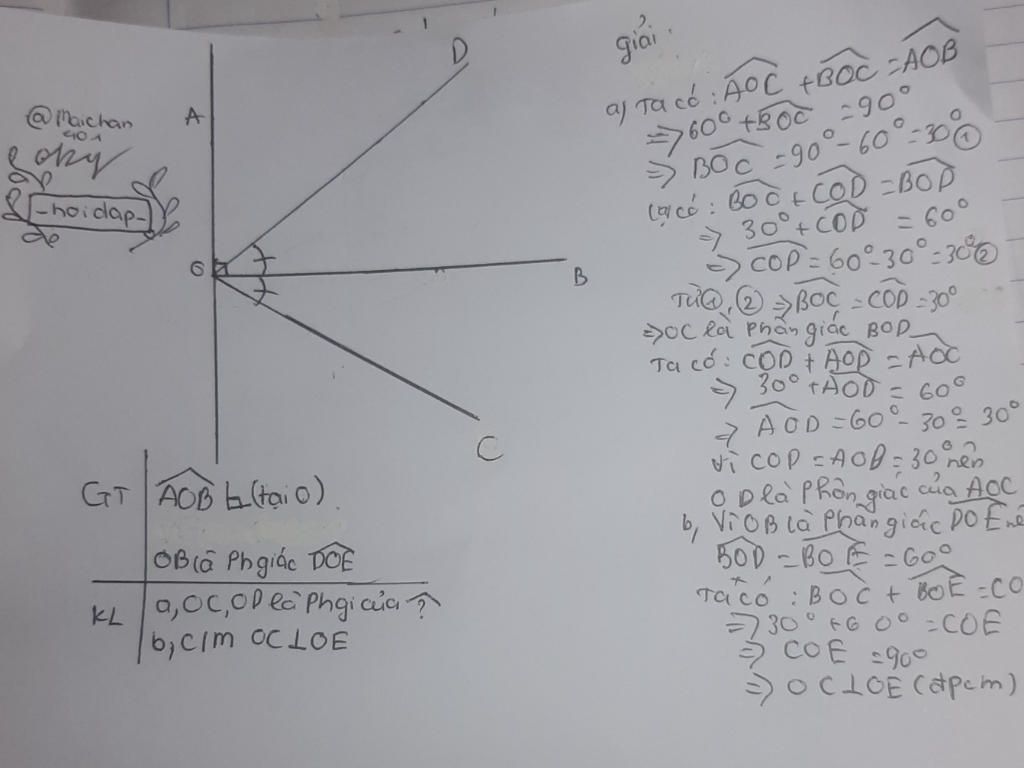 @Maichan
-hoidap-
A
D
B
C
GT
AOB ⊾(tại O)
OB là Phgiác DOE
KL
a, OC, OD là Phgi của ^?
b, C/m OC⊥OE
giải:
a) Ta có: AOC + BOC = AOB
=> 60° + BOC = 90°
=> BOC = 90° - 60° = 30° ①
Lại có: BOC + COD = BOD
=> 30° + COD = 60°
=> COD = 60° - 30° = 30° ②
Từ ①, ② => BOC = COD = 30°
=> OC là Phân giác BOD
Ta có: COD + AOD = AOC
=> 30° + AOD = 60°
=> AOD = 60° - 30° = 30°
Vì COD = AOD = 30° nên
OD là Phân giác của AOC
b, Vì OB là Phân giác DOE nê
BOD = BOE = 60°
Ta có: BOC + BOE = CO
=> 30° + 60° = COE
=> COE = 90°
=> OC⊥OE (đpcm)